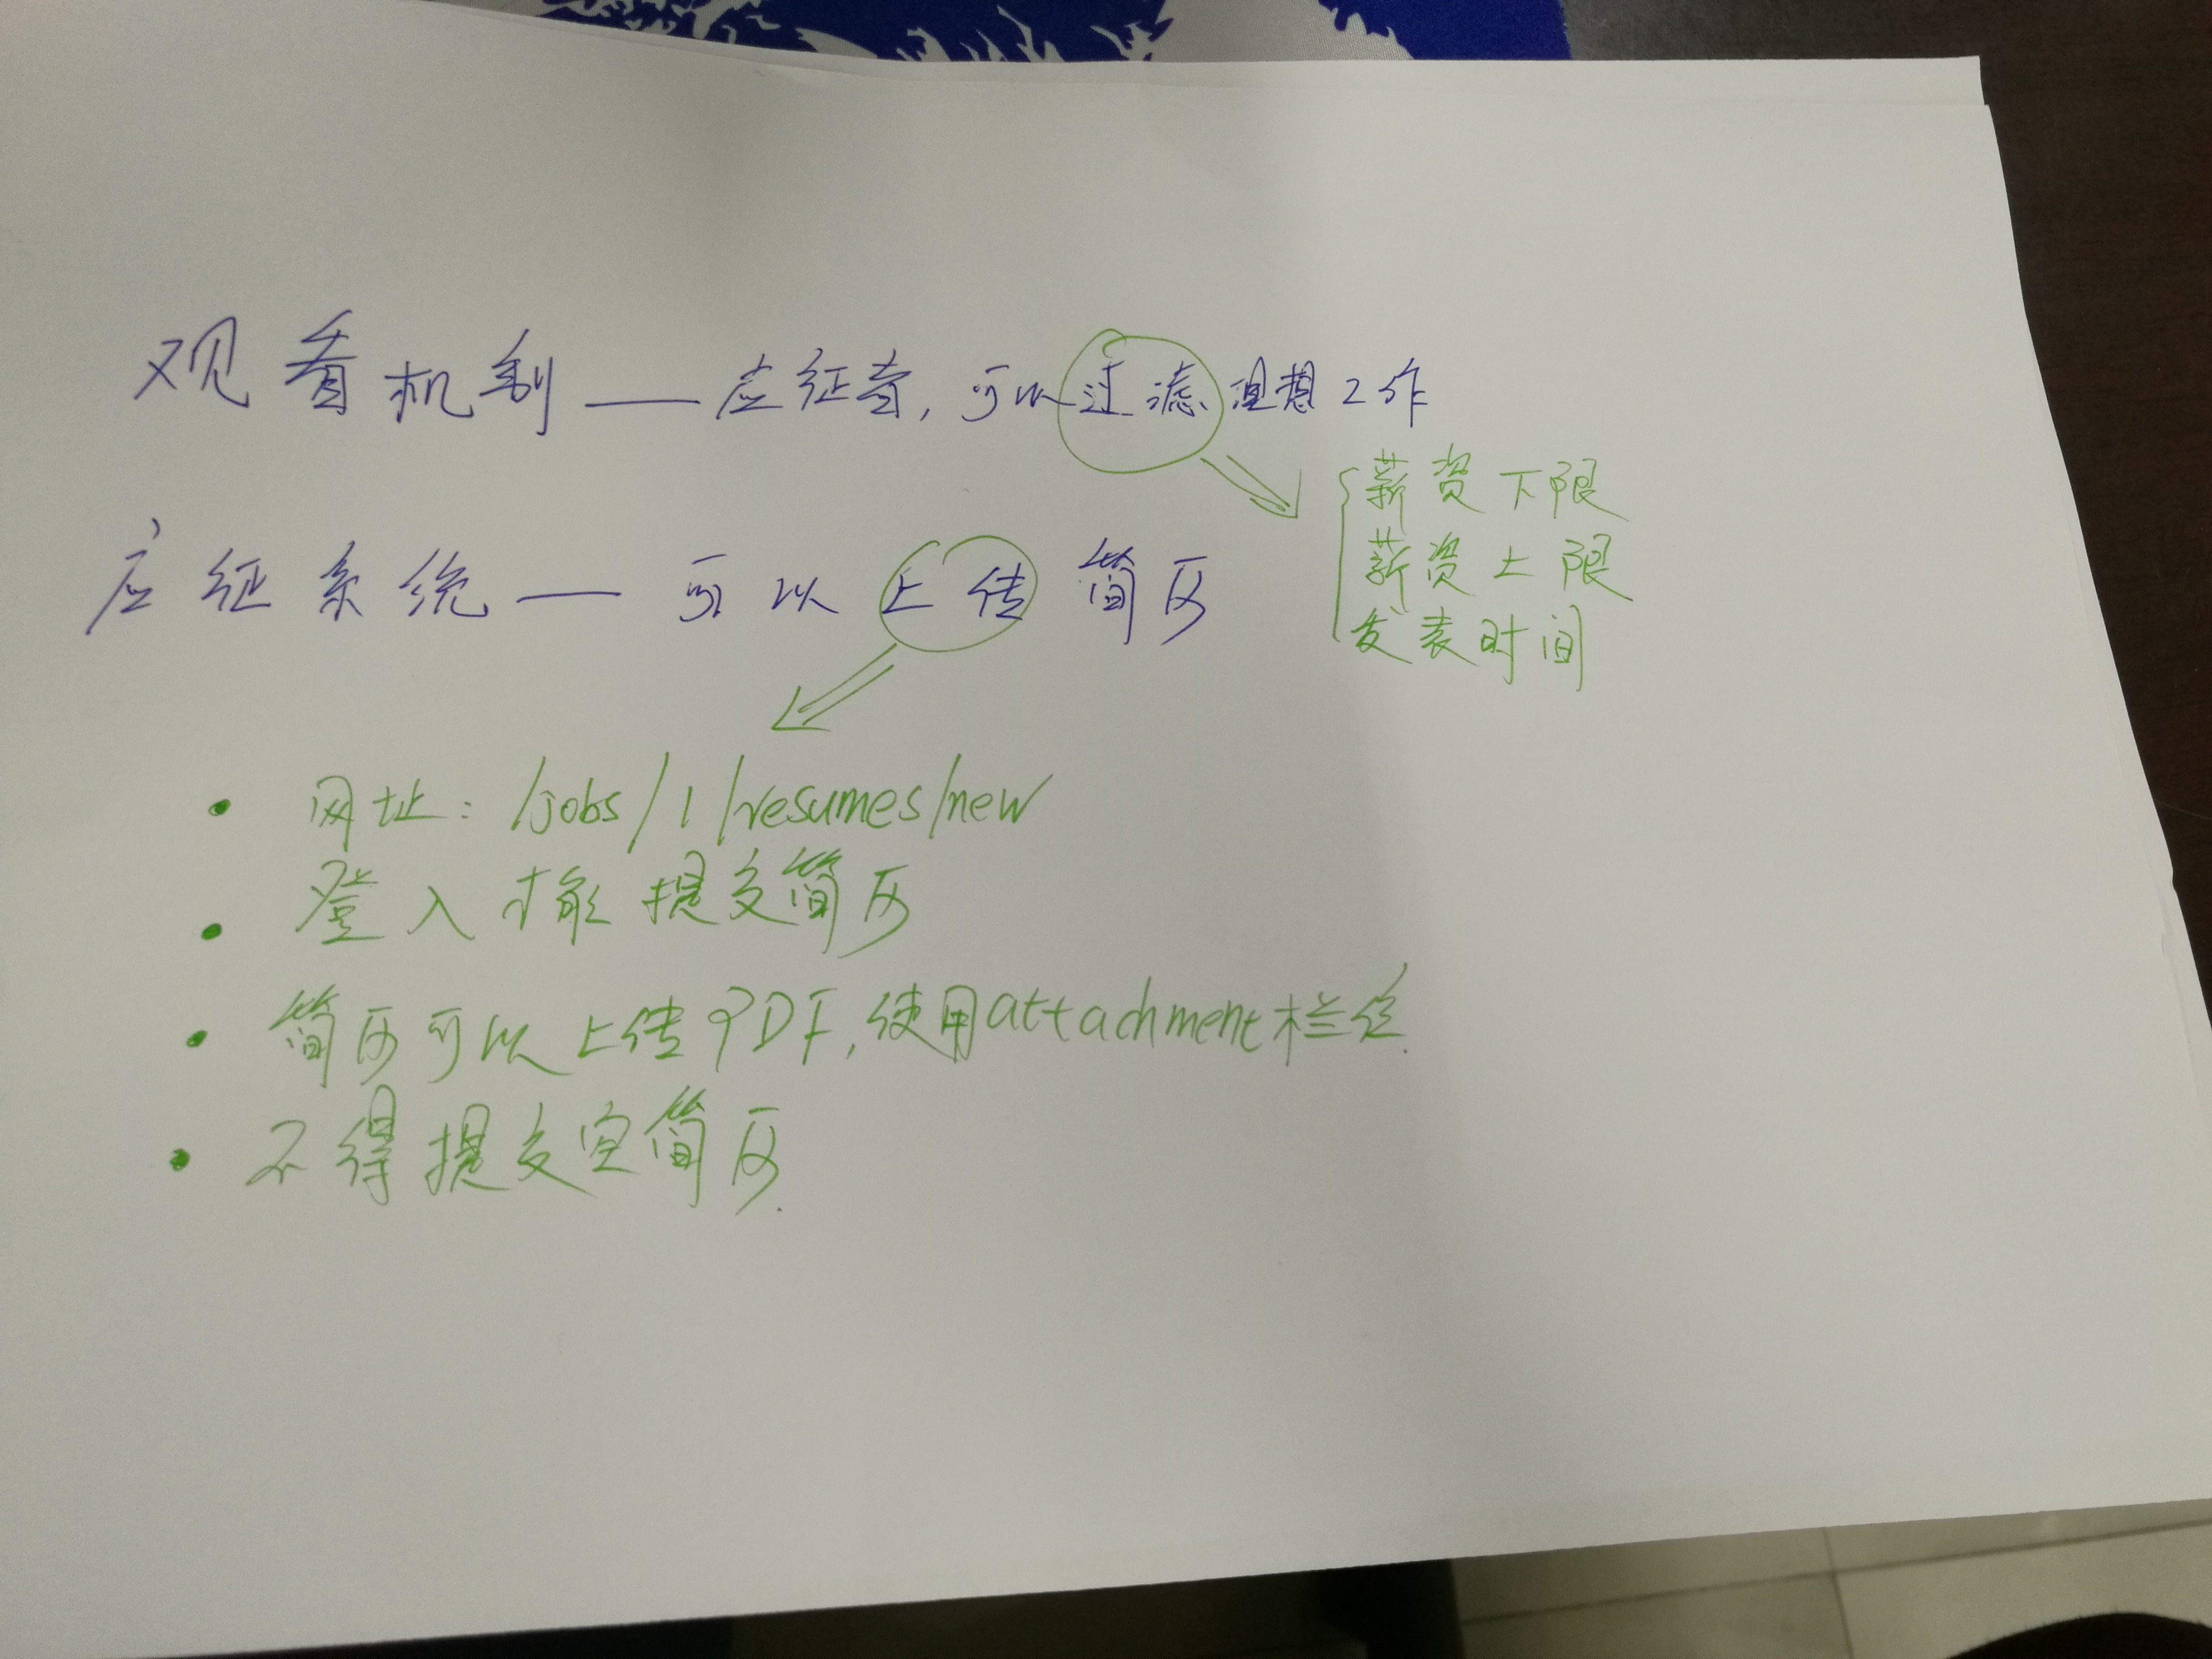 观看机制——应征者,可以过滤理想工作
薪资下限
薪资上限
发表时间
应征系统——可以上传简历
• 网址: /jobs/1/resumes/new
• 登入才能提交简历
• 简历可以上传PDF,使用attachment栏位.
• 不得提交空简历.